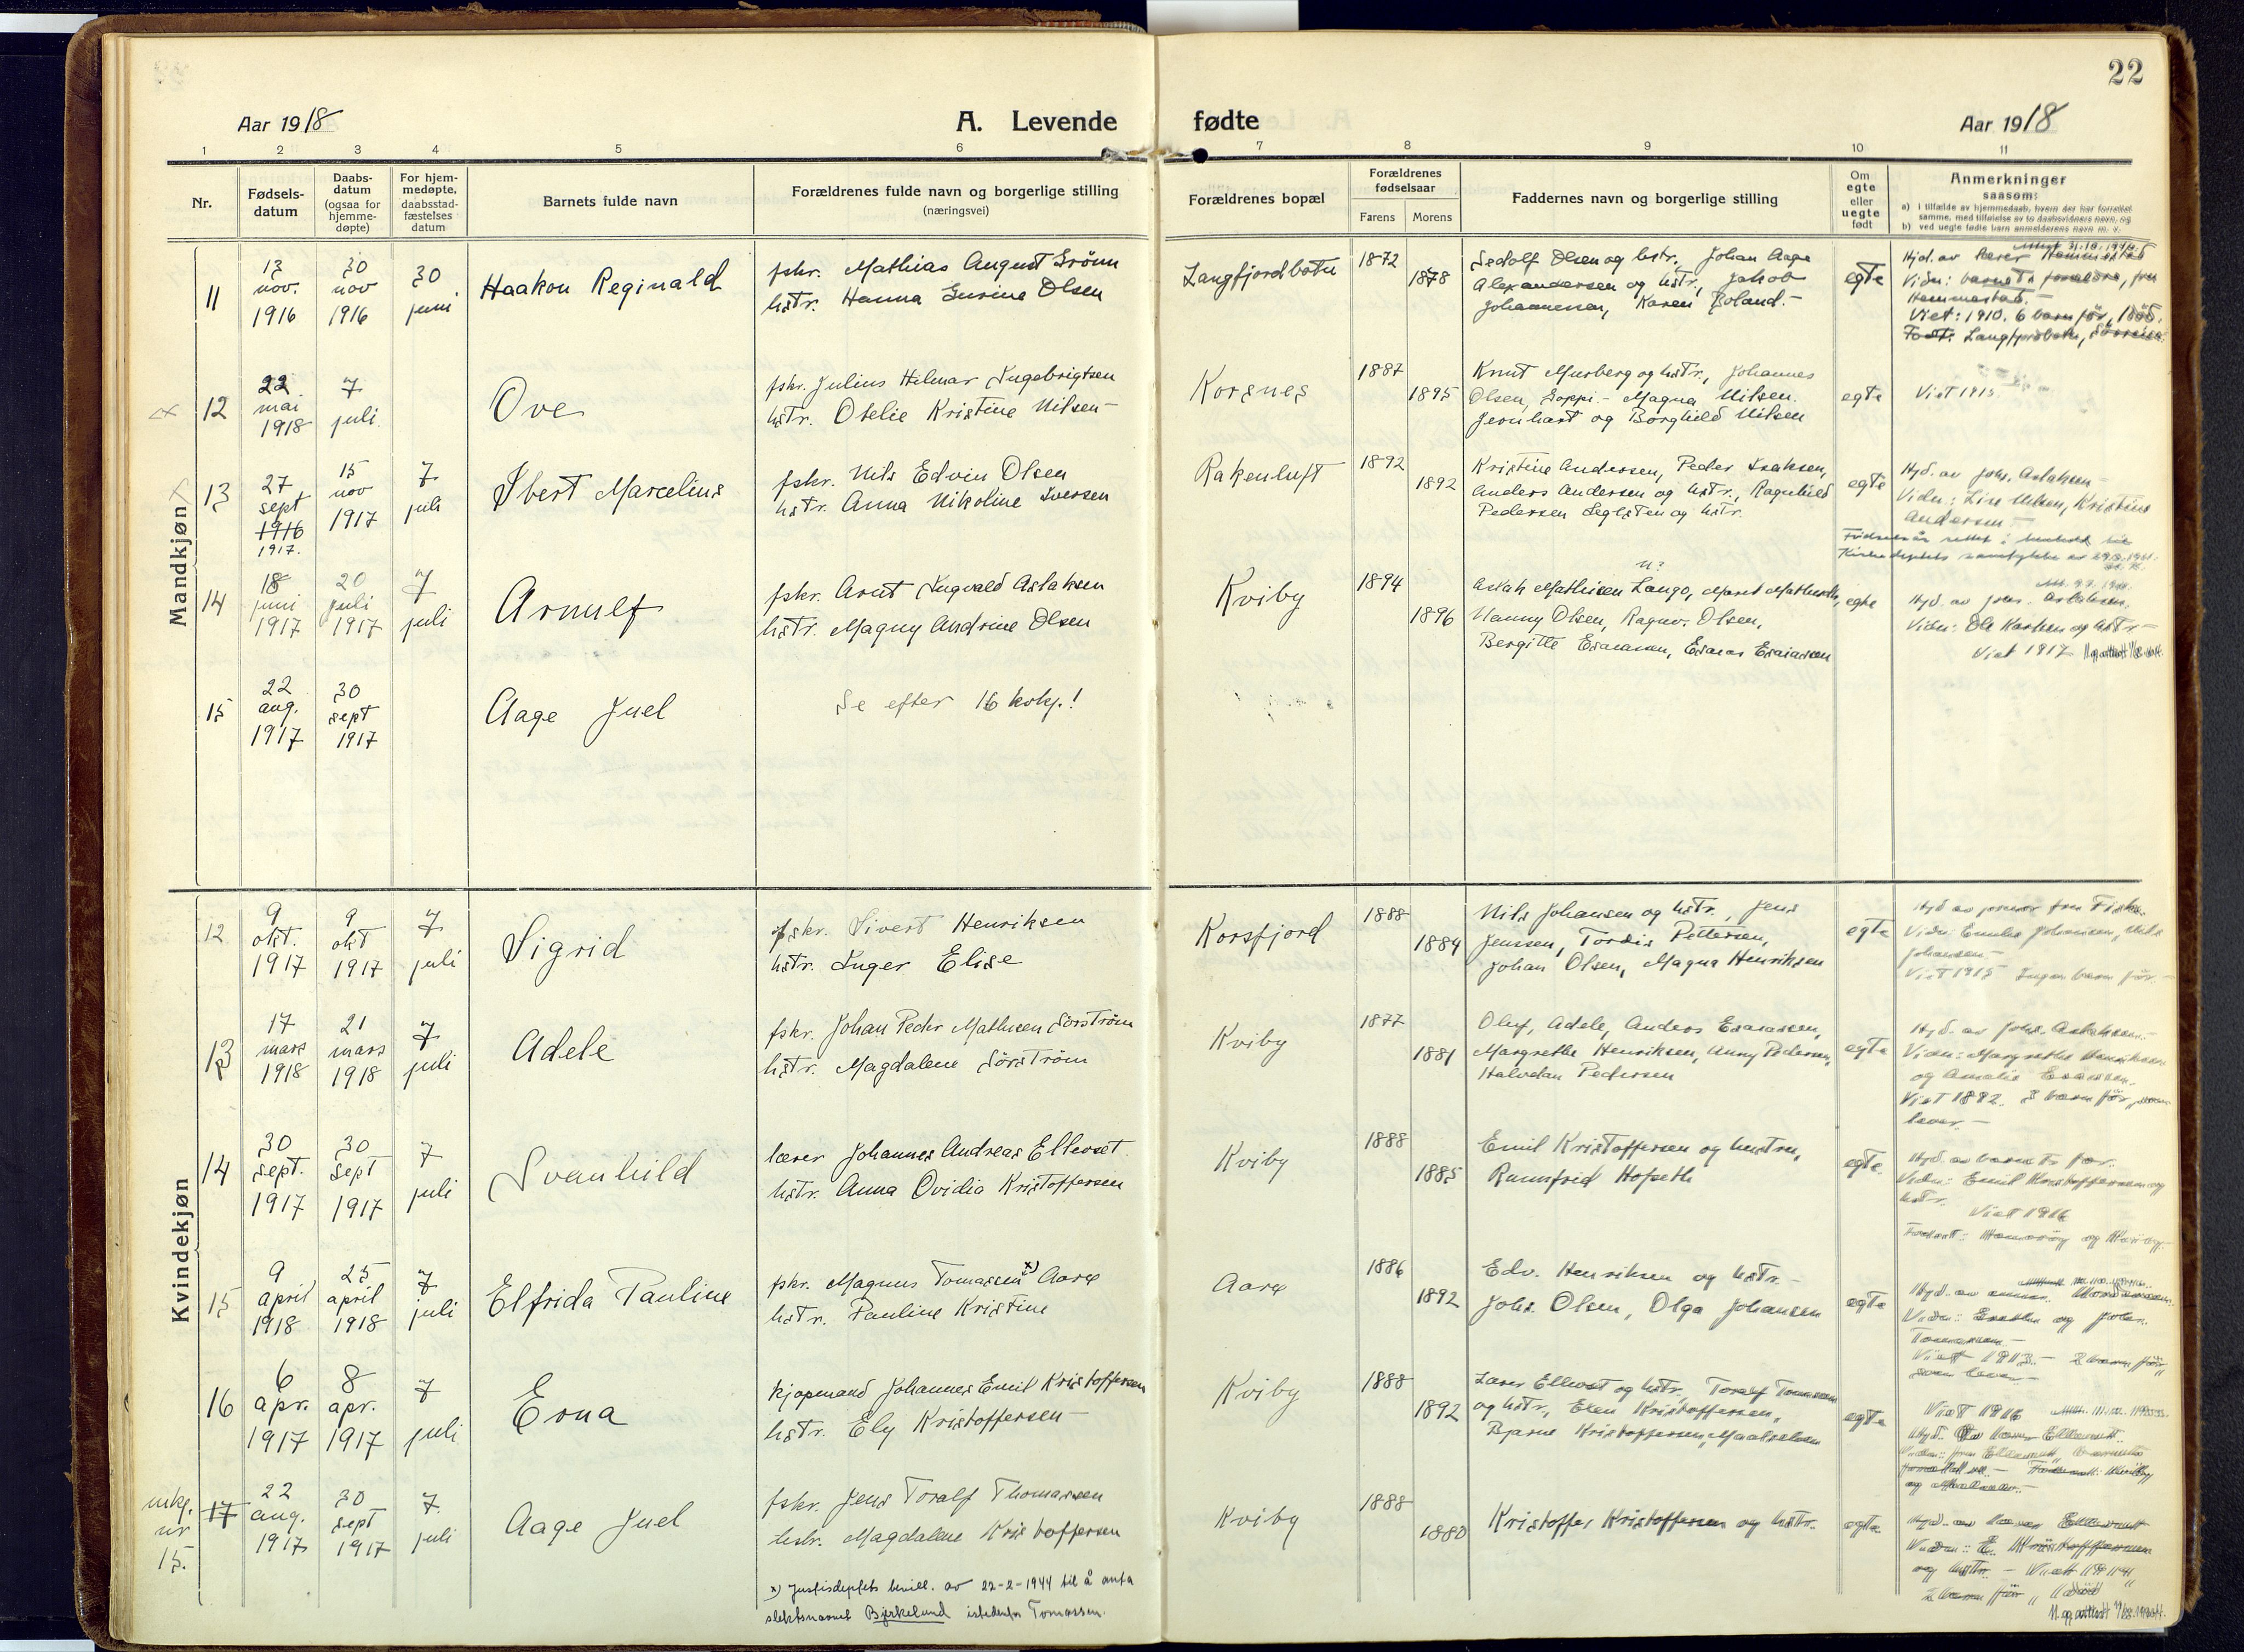 22
Aar 1918
A. Levende
fødte
Aar 1918
1 2 3 4 5 6 7 8 9 10 11
Nr.
Fødsels-
datum
Daabs-
datum
(ogsaa for
hjemme-
døpte)
For hjem-
medøpte,
daabsstad-
fæstelses
datum
Barnets fulde navn
Forældrenes fulde navn og borgerlige stilling
(næringsvei)
Forældrenes bopæl
Forældrenes
fødselsaar
Farens Morens
Faddernes navn og borgerlige stilling
Om
egte
eller
uegte
født
Anmerkninger
saasom:
a) i tilfælde av hjemmedaab, hvem der har forrettet
samme, med tilføielse av to daabsvidners navn, og
b) ved uegte fødte barn anmelderens navn m. v.
Mandkjøn
11
13
nov.
1916
30
nov
1916
30
juni
Haakon Reginald
fskr. Mathias August Grönn
hstr. Hanna Gurine Olsen
Langfjordbotn
1872
1878
Sedolf Olsen og hstr., Johan Aage
Alexandersen og hstr., Jakob
Johannessen, Karen Boland.-
egte
Hjd. av lærer Hemmestad
Vidn: barnets forældre, fru
Hemmestad.-
Viet: 1910. 6 barn før, 1 död.
Fodt: Langfjordbotn,
12
22
mai
1918
7
juli.
Ove
fskr. Julius Helmar Ingebrigtsen
hstr. Otelie Kristine Nilsen-
Korsnes
1887
1895
Knut Murberg og hstr., Johannes
Olsen, Soppi.- Magna Nilsen.
Jernhart og Borghild Nilsen
egte
Viet 1915
13
27
sept
1916
1917.
15
nov
1917
7
juli
Ibert Marcelius
fskr. Nils Edvin Olsen
hstr. Anna Nikoline Iversen
Rakenluft
1892
1892
Kristine Andersen, Peder Isaksen,
Anders Andersen og hstr., Ragnhild
Pedersen Leglsten og hstr.
egte
Hjd. av Johs. Aslaksen-
Vidn: Lise Nilsen, Kristine
Andersen-
Fødselsår rettet i henhold til
14
18
juni
1917
20
juli
1917
7
juli
Arnulf
fskr. Arnt Ingvald Aslaksen
hstr. Magny Andrine Olsen
Kviby
1894
1896
n?
Aslak Mathisen Lango, Maret Mathisdtr,
Nanny Olsen, Ragnv. Olsen,
Bergitte Esaiassen, Esaias Esaiassen
egte
Hjd. av Johs. Aslaksen,
Vidn: Ole Karlsen og hstr-
Viet 1917
15
22
aug.
1917
30
sept
1917
Aage Juel
Se efter 16 kvkj.!
Kvindekjøn
12
9
okt.
1917
9
okt
1917
7
juli
Sigrid
fskr. Sivert Henriksen
hstr. Inger Elise
Korsfjord
1888
1884
Nils Johansen og hstr., Jens
Jenssen, Tordis Pettersen,
Johan Olsen, Magna Henriksen
egte
Vidn: Emilie Johansen, Nils
Johansen-
Viet 1915 Ingen barn før-
13
17
mars
1918
21
mars
1918
7
juli
Adele
fskr. Johan Peder Mathisen Sörström
hstr. Magdalene Sörström
Kviby
1877
1881
Oluf, Adele, Anders Esaiassen,
Margrethe Henriksen, Anny Pedersen,
Halvdan Pedersen
egte
Hjd. av Johs. Aslaksen.-
Vidn: Margrethe Henriksen
og Amalie Esaiassen.
Viet 1892. 3 barn før, som
lever.-
14
30
sept.
1917
30
sept
1917
7
juli
Svanhild
lærer Johannes Andreas Ellevset
hstr. Anna Ovidia Kristoffersen
Kviby
1888
1885
Emil Kristoffersen og hustru,
Runnfrid Hofseth
egte.
Hjd. av barnets far.
Vidn: Emil Kristoffersen og
hstr.
Viet 1916
15
9
april
1918
25
april
1918
7
juli
Elfrida Pauline
fskr. Magnus Tomassen x) Aarø
hstr. Pauline Kristine
Aarø
1886
1892
Edv. Henriksen og hstr.-
Johs. Olsen, Olga Johansen
egte
Tomassen-
Viet 1913.- 2 barn før,
som lever-
16
6
apr.
1917
8
apr.
1917
7
juli
Erna
kjøpmand Johannes Emil Kristoffersen
hstr. Ely Kristoffersen-
Kviby
1888
1892
Lærer Ellevset og hstr., Toralf Tomassen
og hstr., Exen Kristoffersen,
Bjarne Kristoffersen, Maalselven
egte
Viet 1916
Hjd. av lærer Ellevset.
mkj.
nr
15.
17
22
aug.
1917
30
sept
1917
7.
juli
Aage Juel
fskr. Jens Toralf Thomassen
hstr. Magdalene Kristoffersen
Kviby
1888
1880
Kristoffer Kristoffersen og hstr.
egte
Hjd. av lærer Ellevset
Vidn: E. Kristoffersen
og hstr. - Viet 1911
2 barn før, 1 död
x) Justisdeptets bevill. av 22-2-1944 til å anta
slektsnavnet Bjerkelund istedenfor Tomassen.